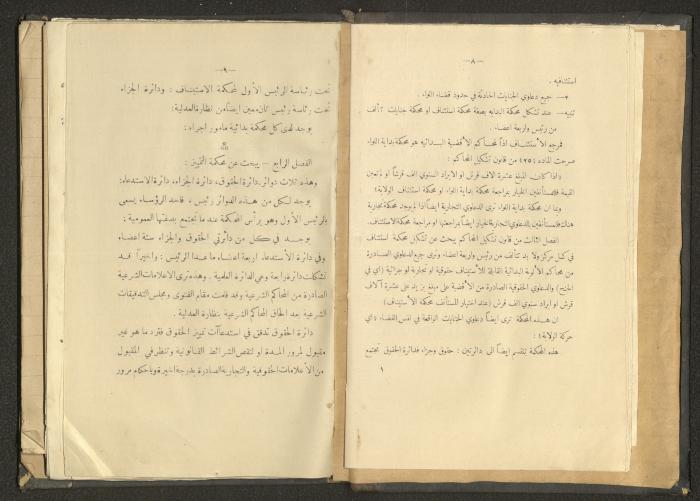 — ٨ —
استئنافيه .
٣— جميع دعاوي الجنايات الحادثة في حدود قضاء اللواء .
تنبيه — عند تشكل محكمة البدايه بصفة محكمة استئناف او محكمة جنايات تتألف
من رئيس واربعة اعضاء .
فمرجع الأستئناف اذاً لمحاكم الأقضية البدائيه هو محكمة بداية اللواء
صرحت الماده (٢٥) من قانون تشكيل المحاكم :
«اذا كان المبلغ عشرة الاف قرش او الايراد السنوي الف قرشاً او
القيمة فللمستأنفين الخيار بمراجعة محكمة بداية اللواء او محكمة استئناف الولاية»
وبما ان محكمة بداية اللواء ترى الدعاوي التجارية ايضاً اذا لم يوجد محكمة تجارية
هناك فللمستأنفين بالدعاوي التجارية الخيار ايضاً بمراجعتها او مراجعة محكمة الاستئناف.
الفصل الثالث من قانون تشكيل المحاكم يبحث عن تشكيل محكمة استئناف
في كل مركز ولا بد تتألف من رئيس واربعة اعضاء وترى جميع الدعاوي الصادرة
من محاكم الألوية البدائية القابلة للأستئناف حقوقية او تجارية او جزائية (اي في
الجنح) والدعاوي الحقوقية الصادرة من الأقضية على مبلغ يزيد على عشرة آلاف
قرش او ايراد سنوي الف قرش (عند اختيار المستأنف محكمة الأستئناف)
ان هذه المحكمة ترى ايضاً دعاوي الجنايات الواقعة في نفس القضاء «اي
مركز الولاية» :
هذه المحكمة تنقسم ايضاً الى دائرتين : حقوق وجزاء فدائرة الحقوق تجتمع
— ٩ —
تحت رئاسة الرئيس الأول لمحكمة الاستيناف : ودائرة الجزاء
تحت رئاسة رئيس ثان معين ايضاً من نظارة العدلية :
يوجد لدى كل محكمة بدائية مامور اجراء :
الفصل الرابع — يبحث عن محكمة التمييز :
وهذه ثلاث دوائر ، دائرة الحقوق ، دائرة الجزاء ، دائرة الاستدعاء :
يوجد لكل من هذه الدوائر رئيس ، فاحد الرؤساء يسمى
بالرئيس الأول وهو يرأس المحكمة عند ما تجتمع بدئتها العمومية :
يوجد في كل من دائرتي الحقوق والجزاء ستة اعضاء
وفي دائرة الأستدعاء اربعة اعضاء ما عدا الرئيس : واخيراً قد
تشكلت دائرة رابعة وهي الدائرة العلمية . وهذه ترى الاعلامات الشرعية
الصادرة من المحاكم الشرعية وقد قامت مقام الفتوى ومجلس التدقيقات
الشرعية بعد الحاق المحاكم الشرعية بنظارة العدلية .
دائرة الحقوق تدقق في استدعاآت تمييز الحقوق فترد ما هو غير
مقبول لمرور المدة او لنقص الشرائط القانونية وتنظر في المقبول
من الأعلامات الحقوقية والتجارية الصادرة بدرجة اخيرة وباحكام مرور